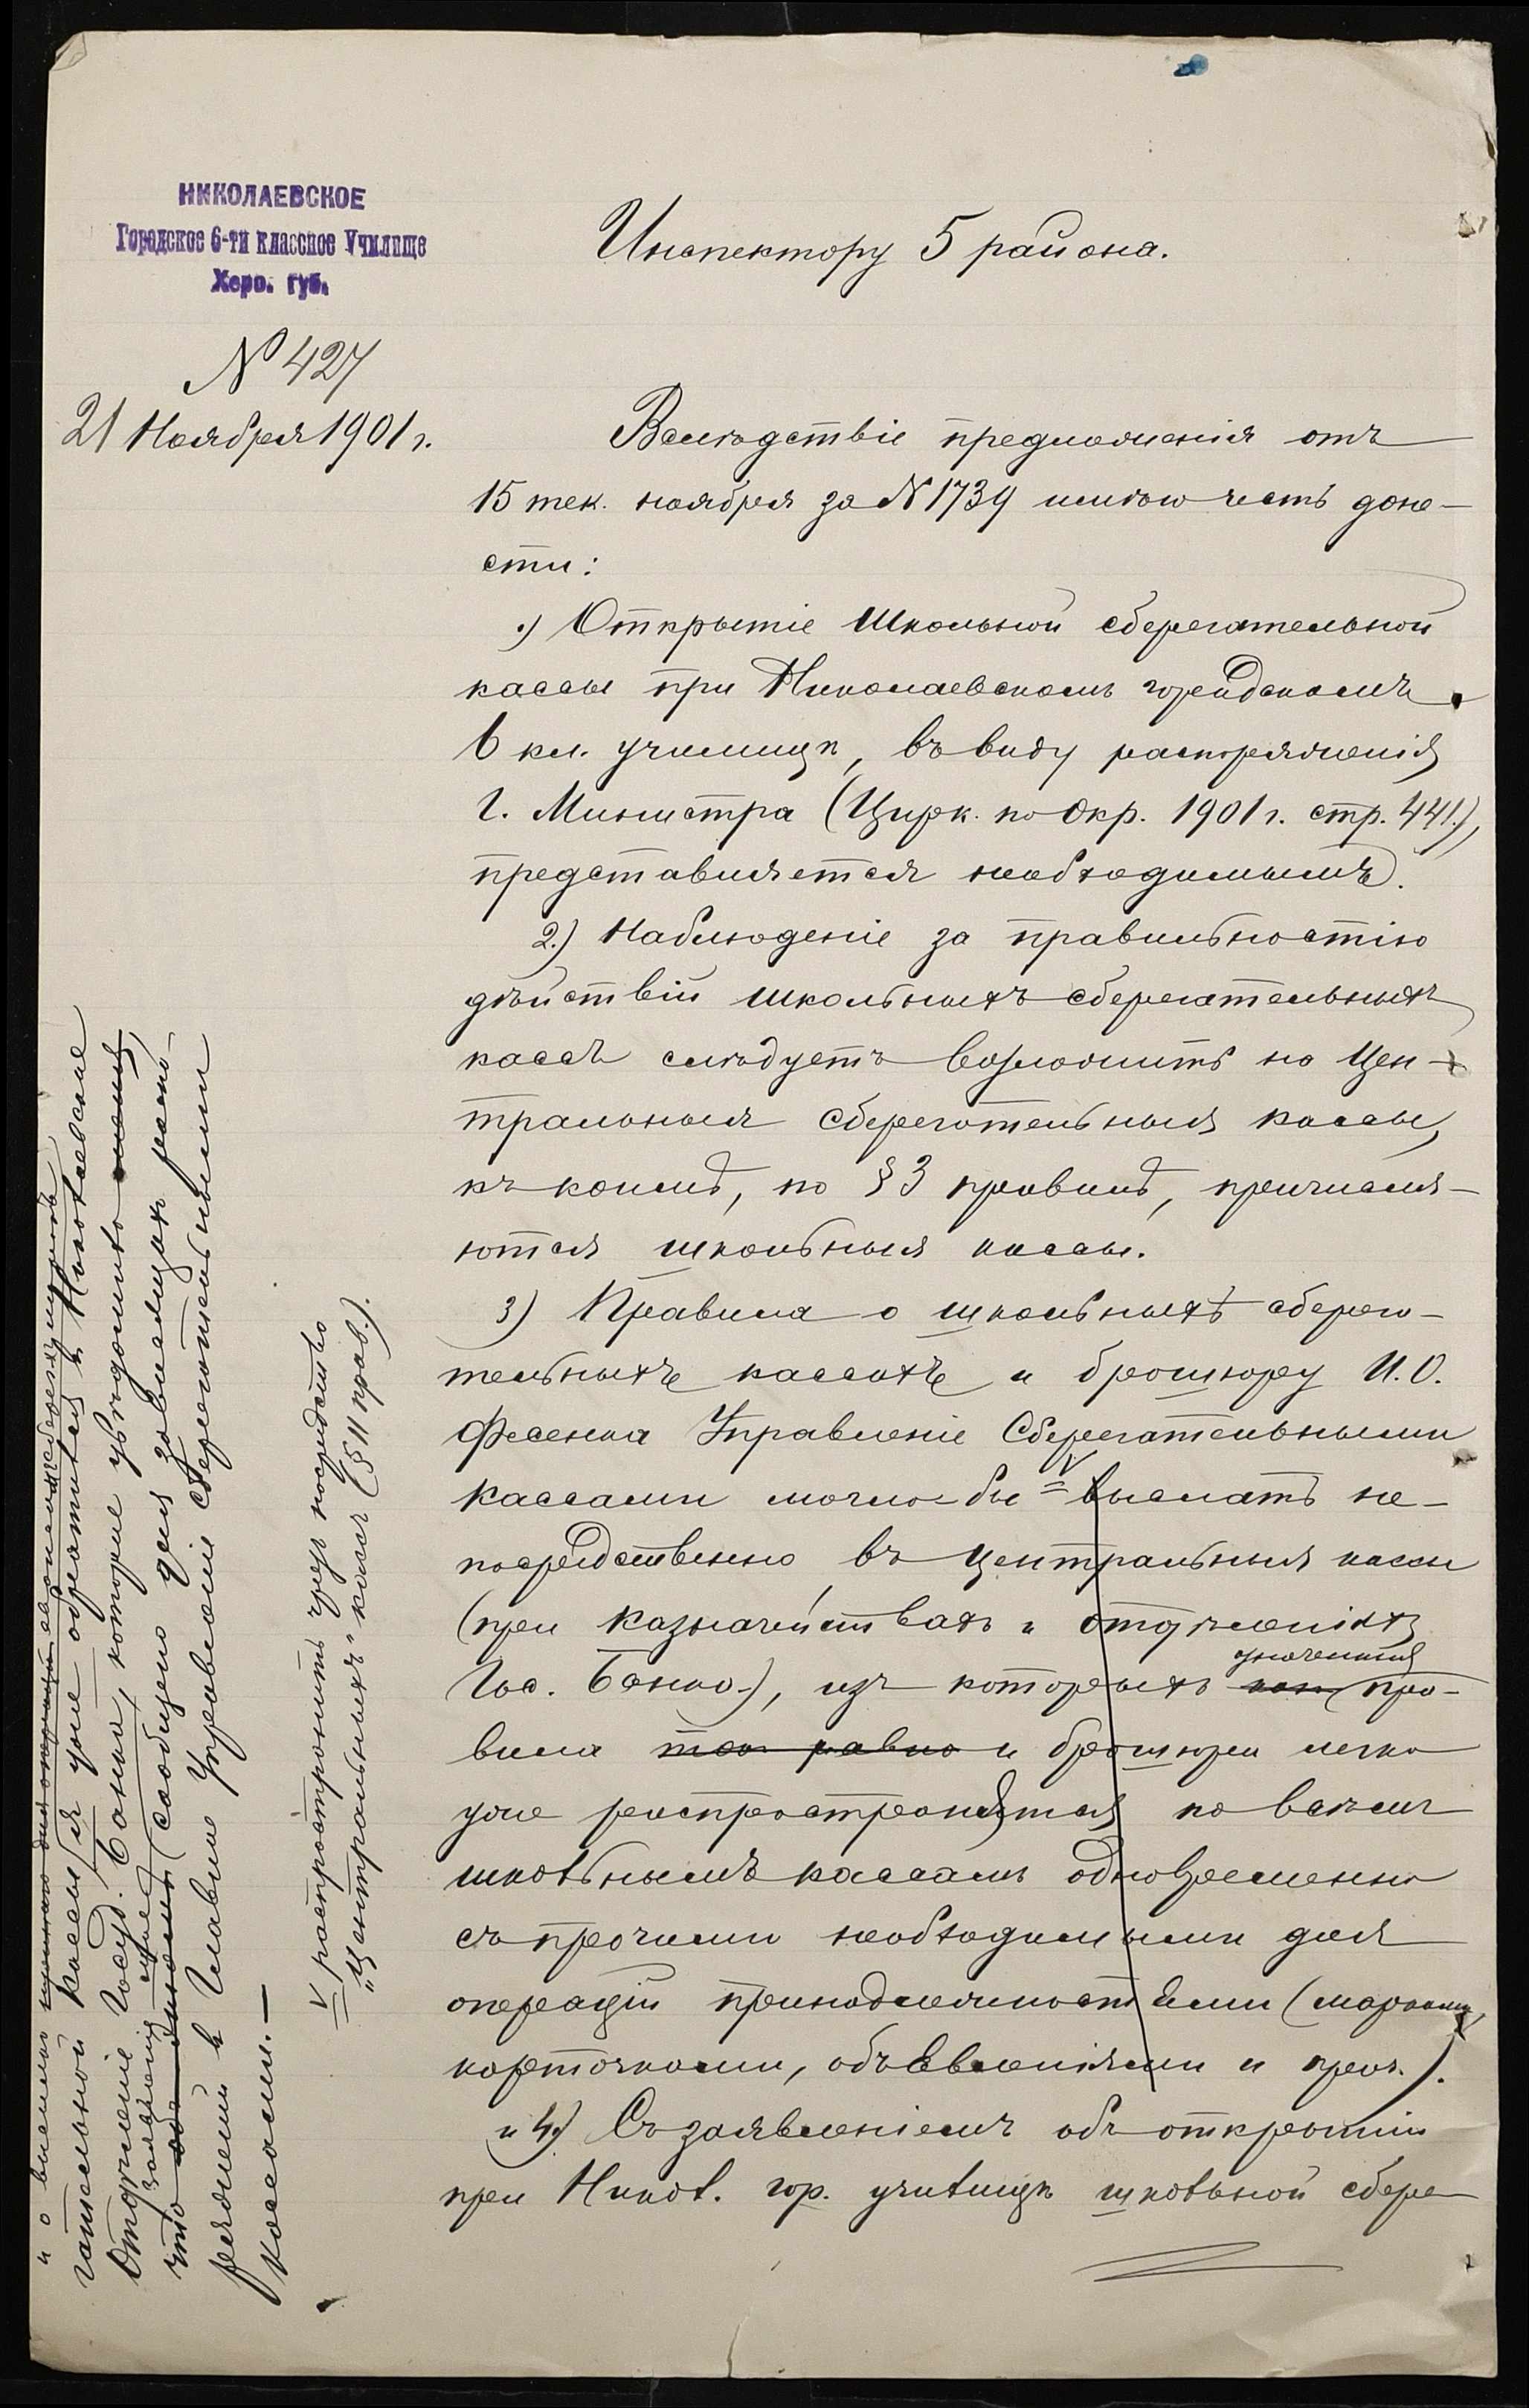 НИКОЛАЕВСКОЕ
Городское 6-ти классное Училище
Херс. губ.
№ 427
21 Ноября 1901 г.
Инспектору 5 района.
Вслѣдствіе предложенія отъ
15 тек. ноября за № 1739 имѣю честь доне-
сти:
1) Открытіе школьной сберегательной
кассы при Николаевскомъ городскомъ
6 кл. училищѣ, въ виду распоряженія
Г. Министра (Цирк. по Окр. 1901 г. стр. 441.),
представляется необходимымъ.
2.) Наблюденіе за правильностію
дѣйствій школьныхъ сберегательныхъ
кассъ слѣдуетъ возложить на Цен-
тральныя сберегательныя кассы,
къ коимъ, по § 3 правилъ, причисля-
ются школьныя кассы.
3) Правила о школьныхъ сберега-
тельныхъ кассахъ и брошюру И.О.
Фесенка Управленіе Сберегательными
кассами могло-бы V выслать не-
посредственно въ центральныя кассы
(при казначействахъ и отдѣленіяхъ
Гос. Банка), изъ которыхъ означенныя пра-
вила так равно и брошюры легко
уже распространятся по всѣмъ
школьнымъ кассамъ одновременно
съ прочими необходимыми для
операцій принадлежностями (марками,
карточками, объявленіями и проч.).
и 4) Съ заявленіемъ объ открытіи
при Никол. гор. училищѣ школьной сбере-
гательной кассы я уже обратился въ Николаевское
Отдѣленіе Госуд. Банка, которое увѣдомило меня,
что заявленіе мое сообщено для зависящихъ распо-
ряженій въ Главное Управленіе сберегательными
кассами.—
V распространить чрезъ посредство
„Центральныхъ" кассъ (§ 11 прав.).